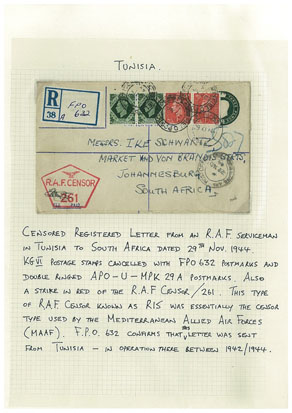 TUNISIA.
R
38
A
FPO
632
MESSRS. IKE SCHWARTZ
MARKET AND VON BRANDIS STS,
JOHANNESBURG
SOUTH AFRICA
R.A.F. CENSOR
261
CENSORED REGISTERED LETTER FROM AN R.A.F. SERVICEMAN
IN TUNISIA TO SOUTH AFRICA DATED 29TH NOV. 1944
KGVI POSTAGE STAMPS CANCELLED WITH FPO 632 POSTMARKS AND
DOUBLE RINGED APO-U-MPK 29 A POSTMARKS. ALSO
A STRIKE IN RED OF THE R.A.F CENSOR/261. THIS TYPE
OF R.A.F CENSOR KNOWN AS R15 WAS ESSENTIALLY THE CENSOR
TYPE USED BY THE MEDITERRANEAN ALLIED AIR FORCES
(MAAF). F.P.O. 632 CONFIRMS THAT THIS LETTER WAS SENT
FROM TUNISIA - IN OPERATION THERE BETWEEN 1942/1944.